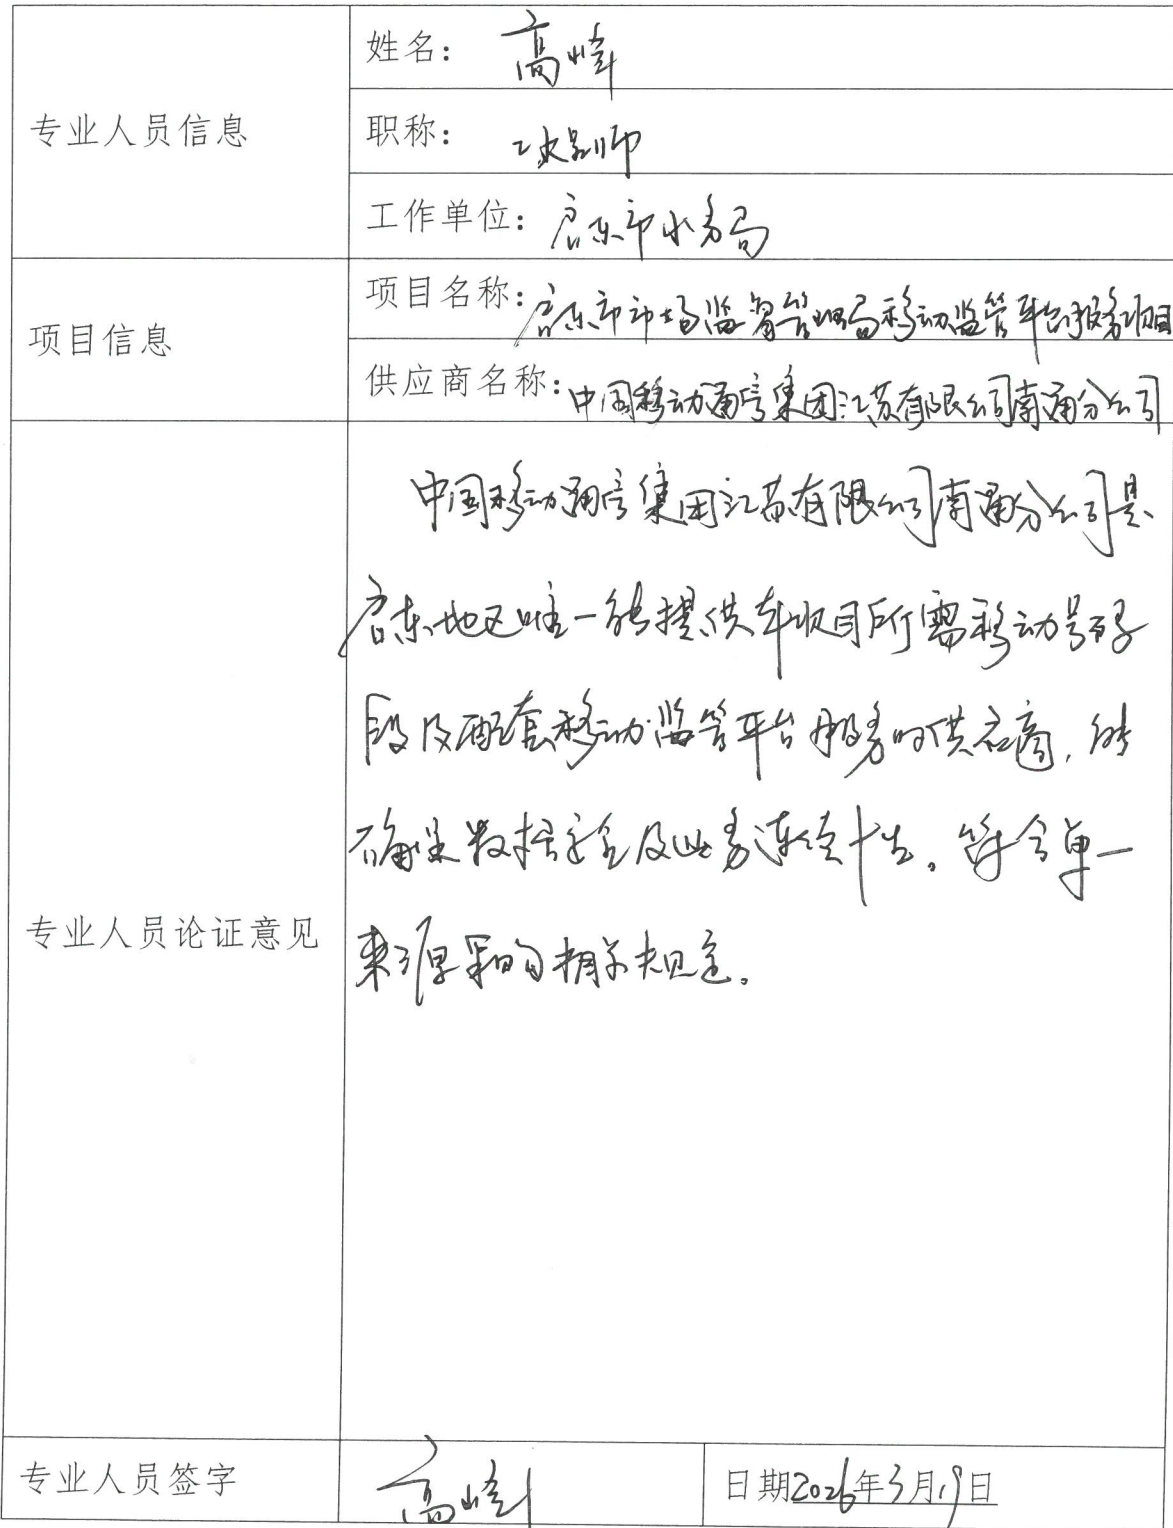 专业人员信息
姓名：高峰
职称：工程师
工作单位：启东市水务局
项目信息
项目名称：启东市市场监督管理局移动监管平台服务项目
供应商名称：中国移动通信集团江苏有限公司南通分公司
专业人员论证意见
中国移动通信集团江苏有限公司南通分公司是
启东地区唯一能提供本项目所需移动号码
段及配套移动监管平台服务的供应商，能
确保数据安全及业务连续性。符合单一
来源采购相关规定。
专业人员签字
高峰
日期2026年3月19日